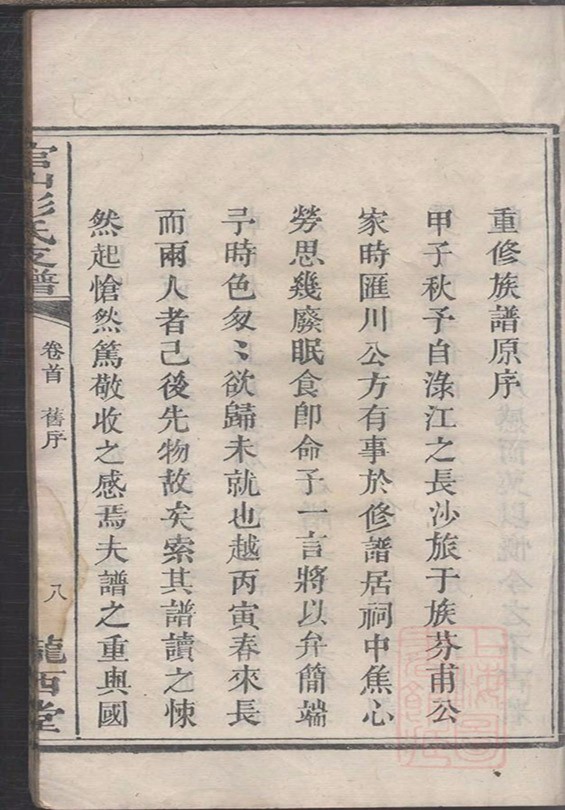 重修族譜原序
甲子秋予自淥江之長沙旅于族芬甫公
家時匯川公方有事於修譜居祠中焦心
勞思幾廢眠食卽命予一言將以弁簡端
予時色匆〻欲歸未就也越丙寅春來長
而兩人者己後先物故矣索其譜讀之悚
然起愴然篤敬收之感焉夫譜之重與國
官山彭氏支譜
卷首 舊序
八
隴西堂